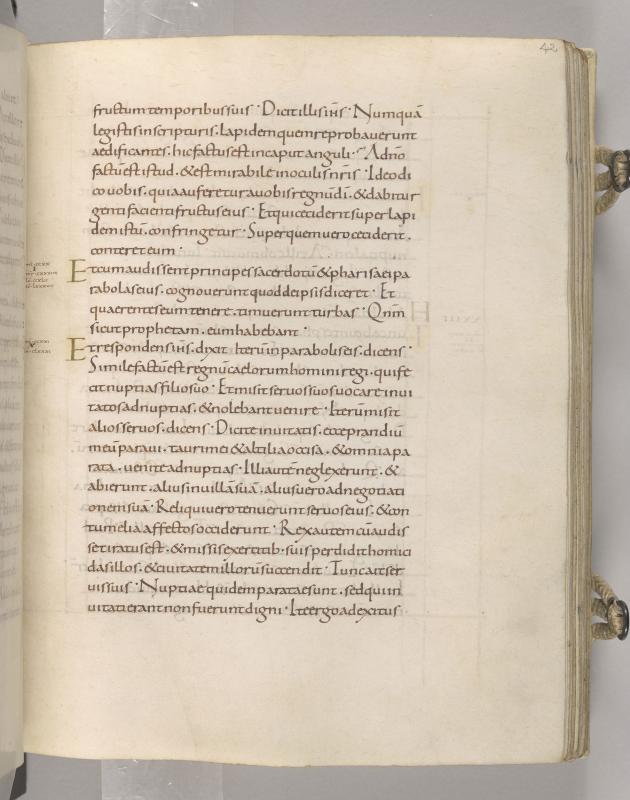 42
fructum temporibus suis · Dicit illis ih̅s · Numquā
legistis in scripturis · lapidem quem reprobaverunt
aedificantes · hic factus est in caput anguli · A dn̅o
factū est istud · & est mirabile in oculis nr̅is · Ideo di
co vobis · quia auferetur a vobis regnū dī · & dabitur
genti facienti fructus eius · Et qui ceciderit super lapi
dem istū · confringetur · Super quem vero ceciderit ·
conteret eum ·
Et cum audissent principes sacerdotū & pharisaei pa
rabolas eius · cognoverunt quod de ipsis diceret · Et
quaerentes eum tenere · timuerunt turbas · Qnm̅
sicut prophetam · eum habebant ·
Et respondens ih̅s · dixit iterū in parabolis eis · dicens ·
Simile factū est regnū caelorum homini regi · qui fe
cit nuptias filio suo · Et misit servos suos vocare invi
tatos ad nuptias · & nolebant venire · Iterū misit
alios servos · dicens · Dicite invitatis · ecce prandiū
meū paravi · tauri mei & altilia occisa · & omnia pa
rata · venite ad nuptias · Illi autē neglexerunt · &
abierunt · alius in villā suā · alius vero ad negotiati
onem suā · Reliqui vero tenuerunt servos eius · & con
tumelia affectos occiderunt · Rex autem cū audis
set iratus est · & missis exercitib· suis perdidit homici
das illos · & civitatem illorū succendit · Tunc ait ser
vis suis · Nuptiae quidem paratae sunt · sed qui in
vitati erant non fuerunt digni · Ite ergo ad exitus